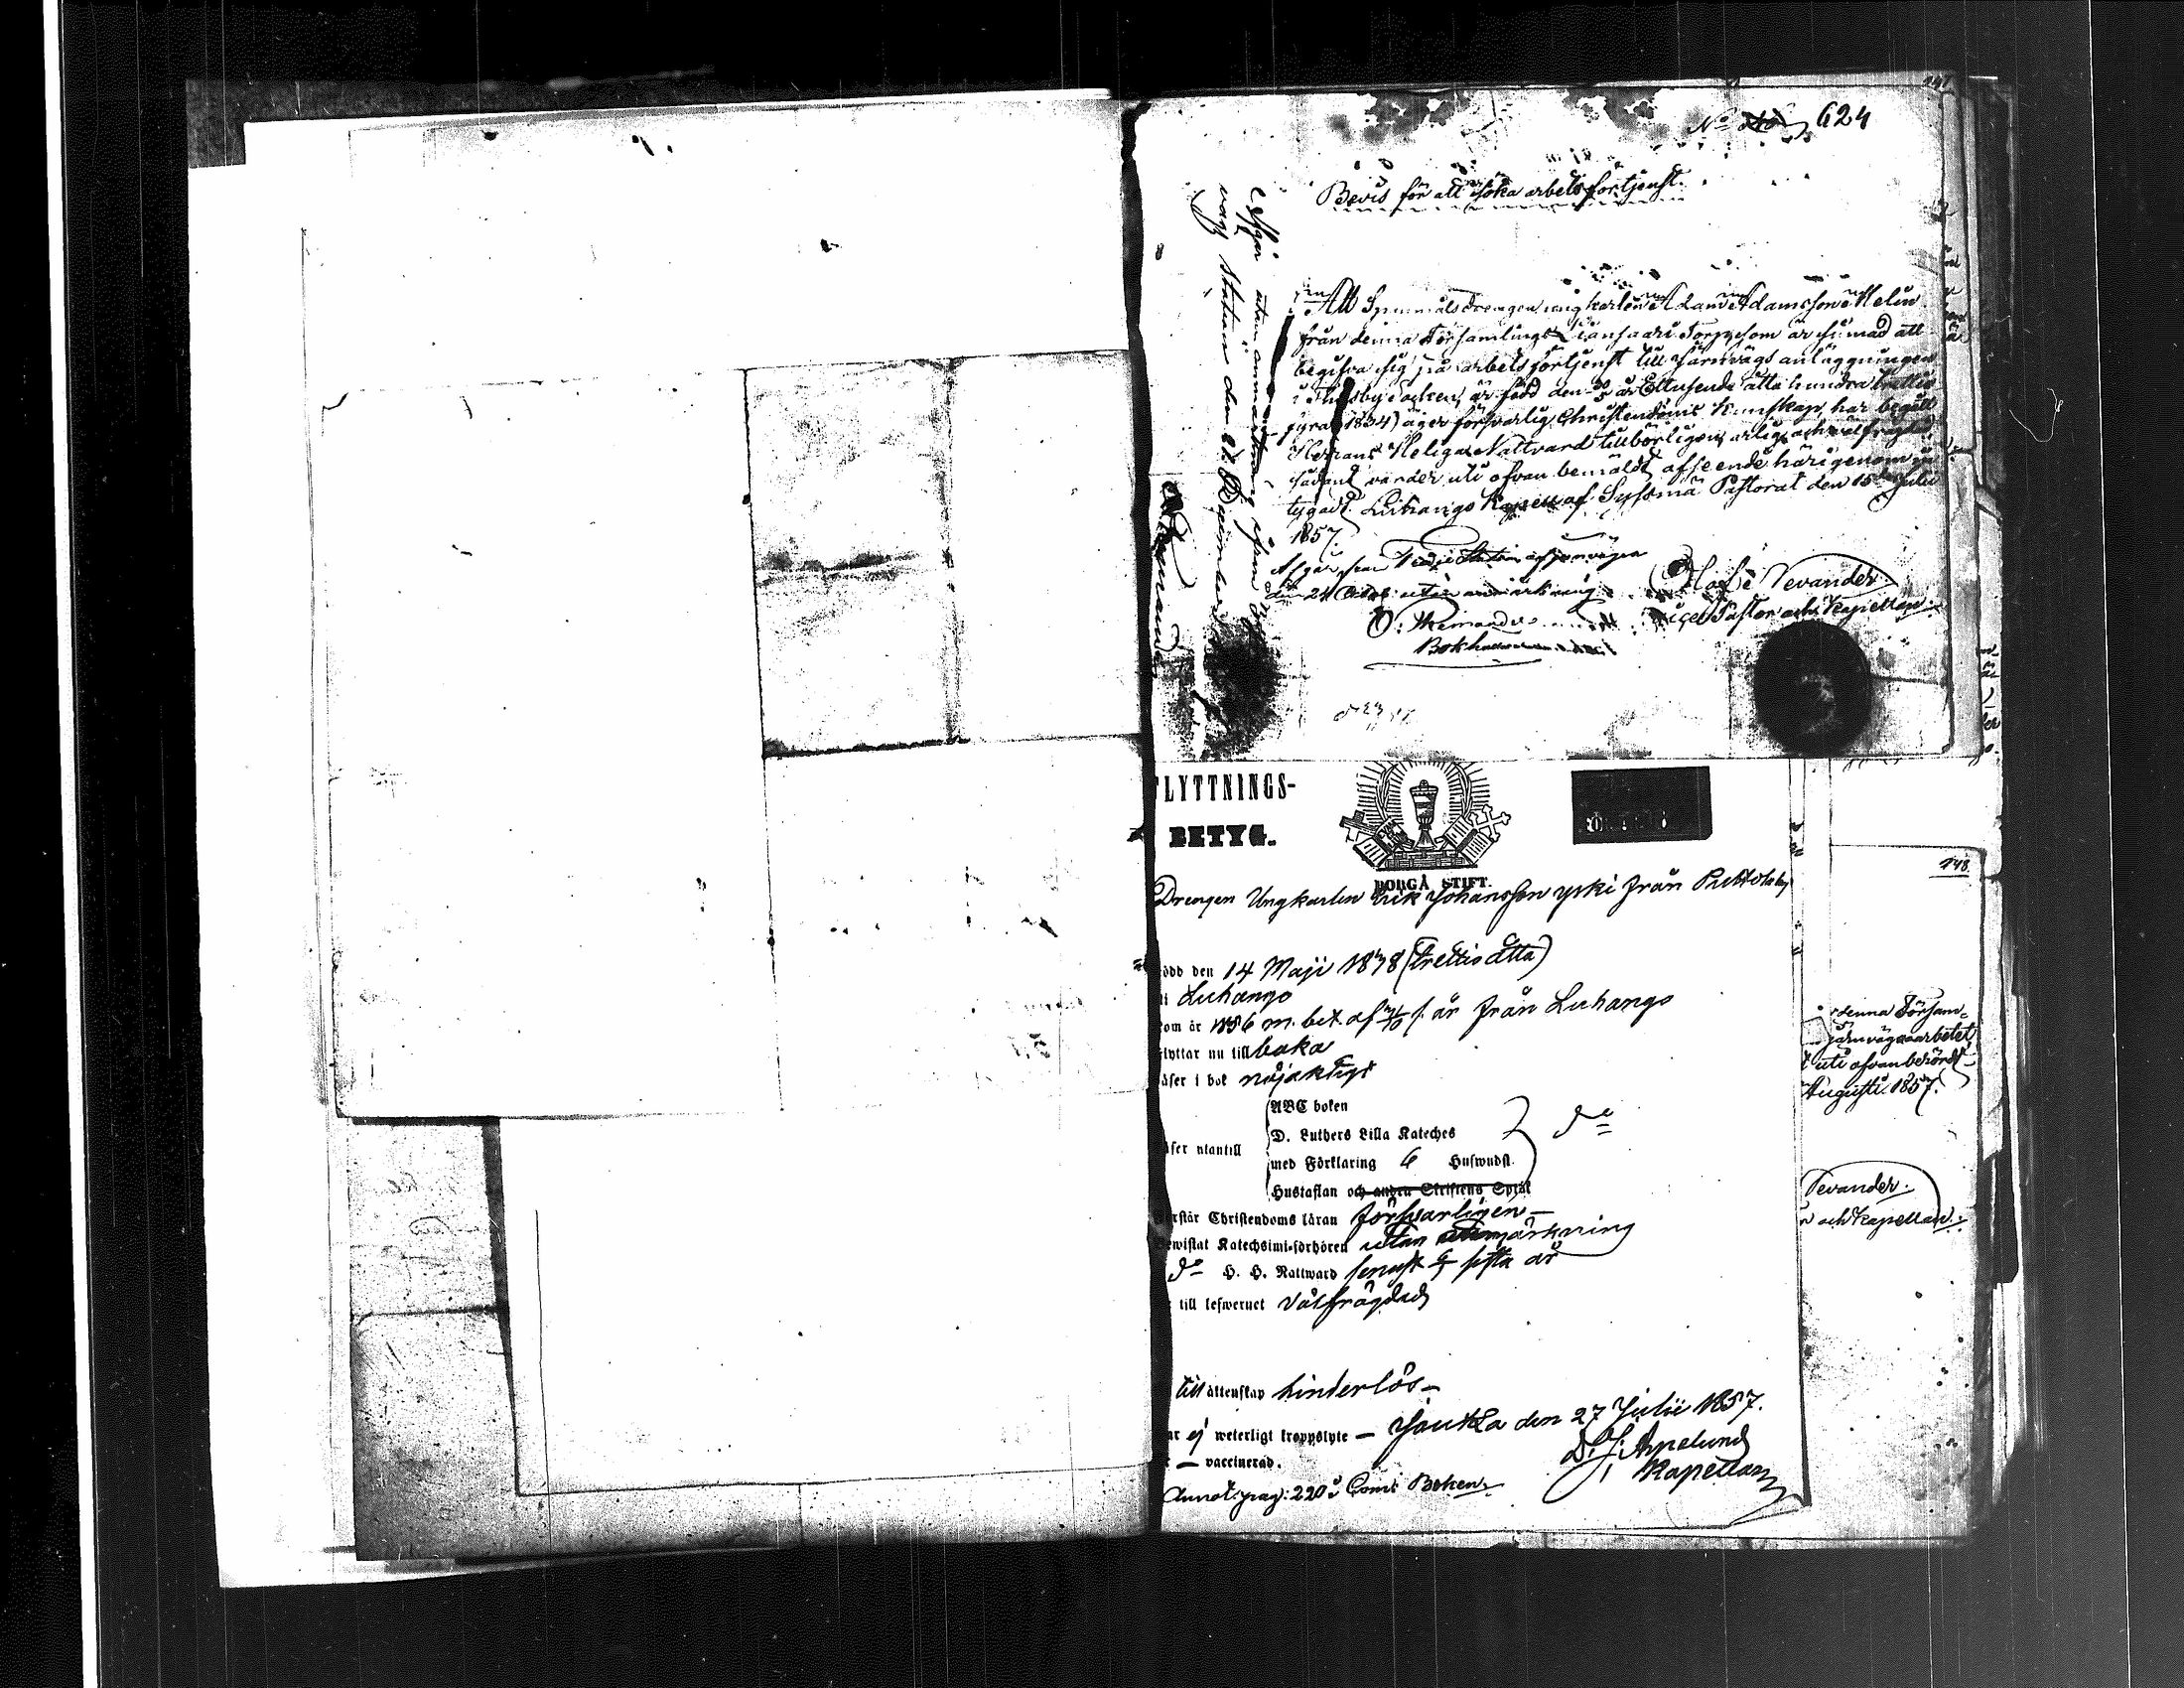 147
No 624
Bevis för att söka arbetsförtjenst.
Att Spinnmålsdrengen ungkarlen Adam Adamsson Helin
från denna Församlings Torp, som är sinnad att
begifva sig på arbetsförtjenst till Järnvägs anläggningen
i Thusby Socken, är född den år Ettusende åtta hundra trettio
fyra (1834) äger försvarlig Christendoms kunskap, har begått
Herrans Heliga Nattvard tillbörligen, ärlig och välfrägdad,
sådant varder uti ofvan bemäldt afseende härigenom be-
tygadt. Luhango Kapell af Sysmä Pastorat den 15 Julii
1857.
Afgår från Station af jernvägen
den 24 utan anmärkning
Bokhållare
Nevander
Vice Pastor och Kapellan.
Afgår utan anmärkning från
vägs Station den 21
FLYTTNINGS-
BETYG.
BORGÅ STIFT.
Drengen Ungkarlen Erik Johansson Yski från
född den 14 Maji 1838 (trettio åtta)
i Luhango
som år 1856 m. bet. af s. år från Luhango
flyttar nu till baka
läser i bok nöjaktigt
ABC boken
D. Luthers Lilla Kateches
läser utantill
med Förklaring 6 Huswudst.
Hustaflan och andra Skriftens Språk
do
förstår Christendoms läran försvarligen –
bewistat Katechsimi-förhören utan anmärkning
do H. H. Nattward senast sista år
till lefwernet välfrägdad
till ägtenskap hinderlös –
har ej weterligt kroppslyte – Joutsa den 27 Julii 1857.
– vaccinerad.
D. J. Appelund
Kapellan
Annot. pag: 220 i Com: Boken
148
denna Försam-
järnvägsarbetet
uti ofvanberörd
Augusti 1857.
Nevander.
och Kapellan.